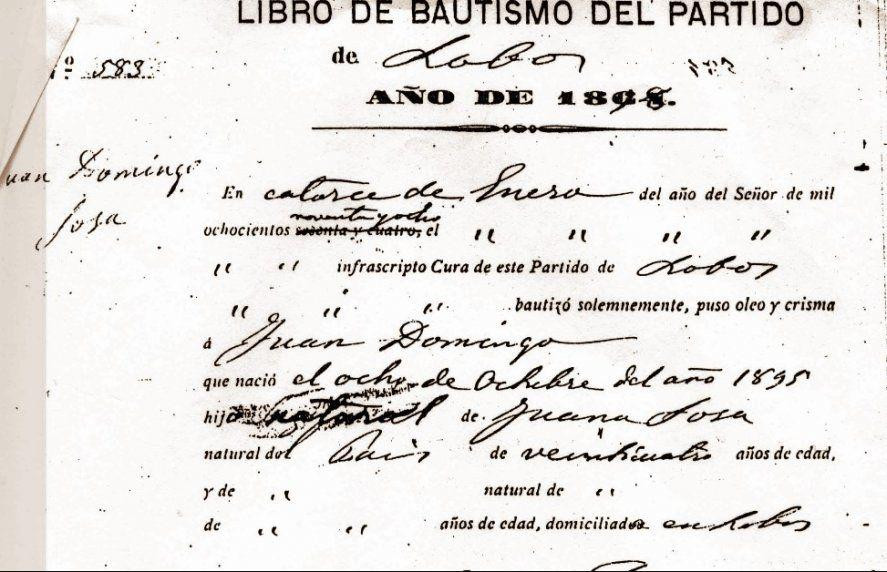 LIBRO DE BAUTISMO DEL PARTIDO
de Lobos
583
AÑO DE 1898.
Juan Domingo
Sosa
En catorce de Enero del año del Señor de mil
noventa y ocho
ochocientos sesenta y cuatro, el " " " "
" " infrascripto Cura de este Partido de Lobos
" " " bautizó solemnemente, puso oleo y crisma
á Juan Domingo
que nació el ocho de Octubre del año 1895
hijo natural de Juana Sosa
natural del Pais de veinticuatro años de edad,
y de " natural de "
de " " años de edad, domiciliados en Lobos